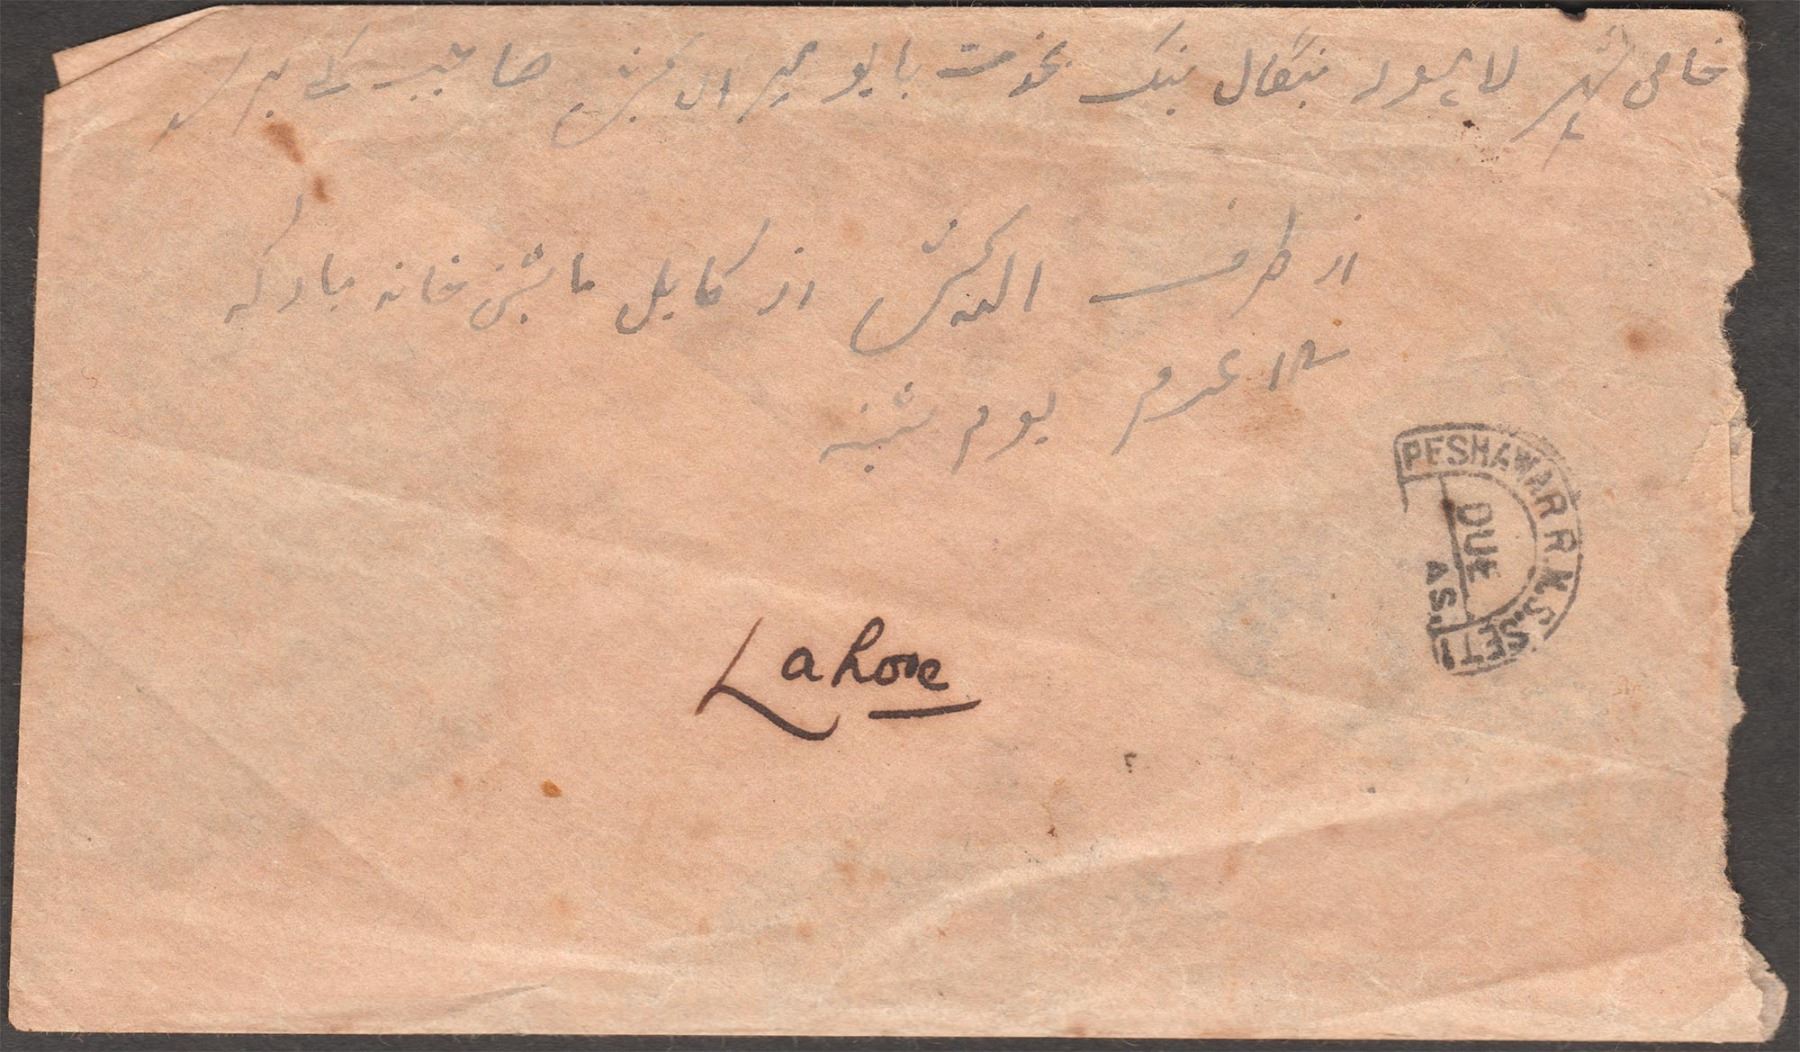 خاص شہر لاہور بنگال بنک بخدمت بابو میراں بخش صاحب کے
از طرف الہ بخش از کابل ماشین خانہ مبارکہ
۱۲ محرم یوم شنبہ
PESHAWAR R.M.S. SET1
DUE
AS.
Lahore